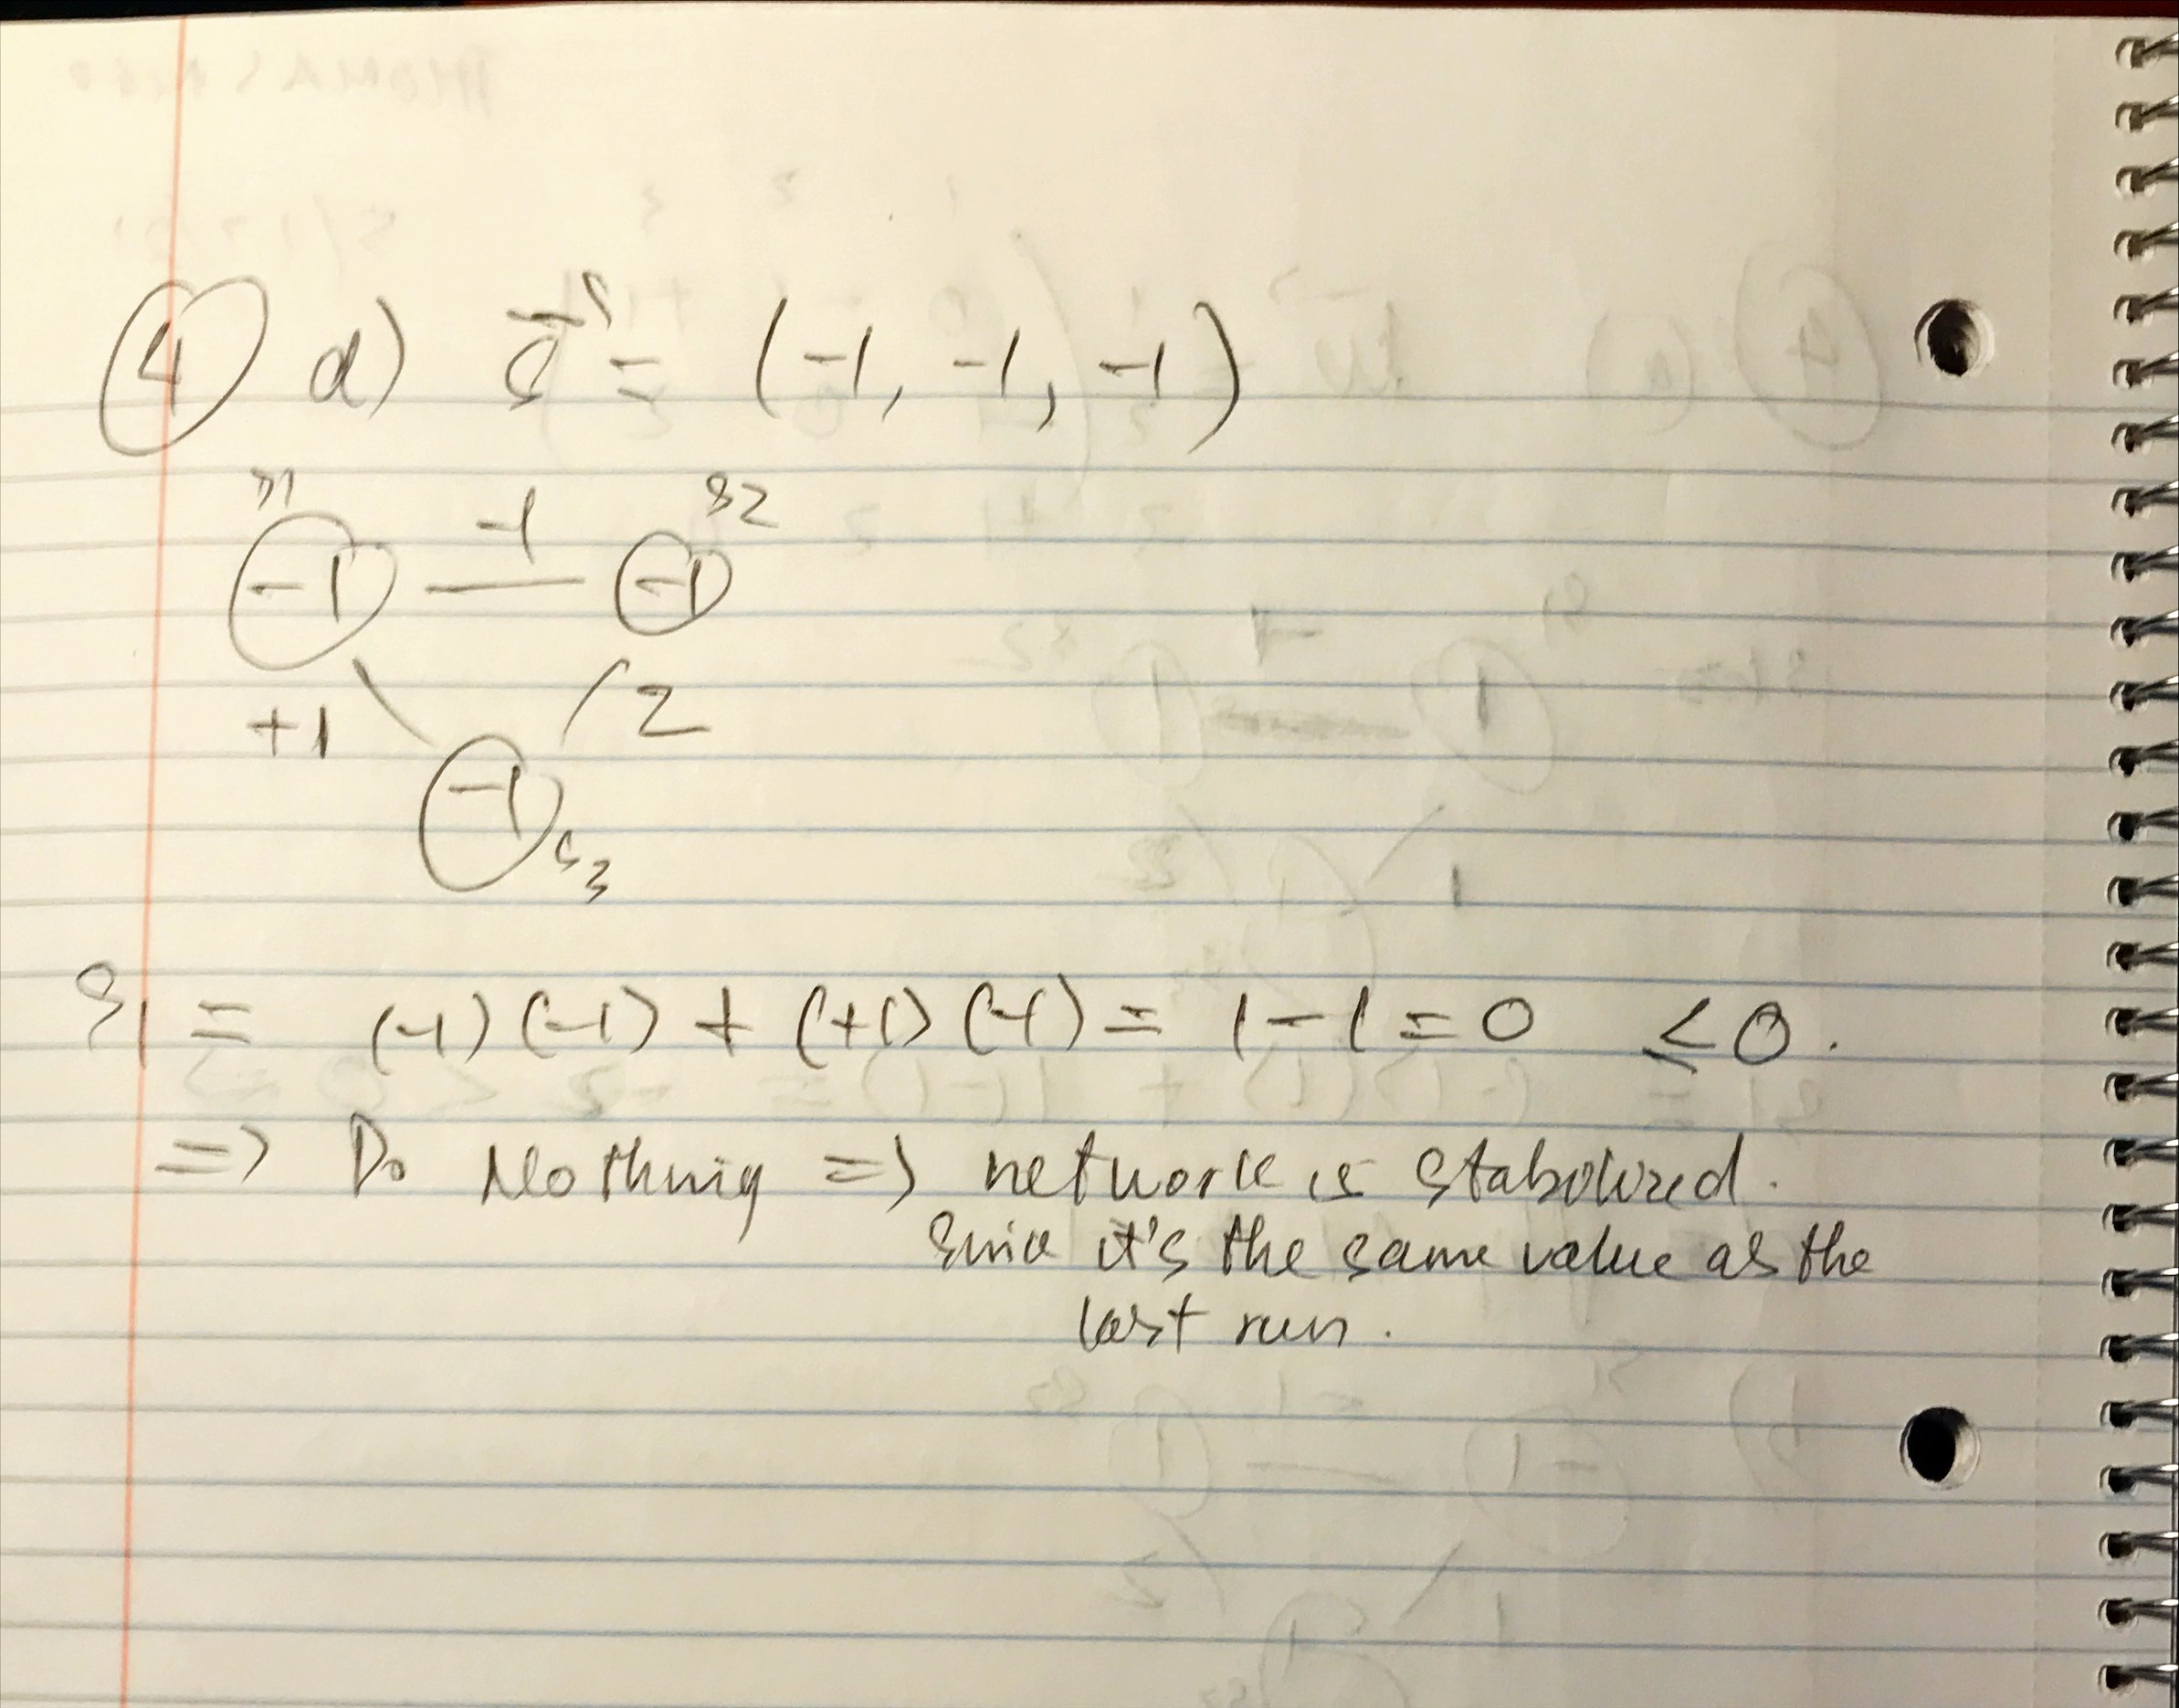 ④ d) s⃗ = (-1, -1, -1)
s1 -1 s2
-1 — -1
+1 \ / 2
-1 s3
s1 = (-1)(-1) + (+1)(-1) = 1-1 = 0 ≤ 0.
=> Do Nothing => network is stabolized.
Since it's the same value as the
last run.